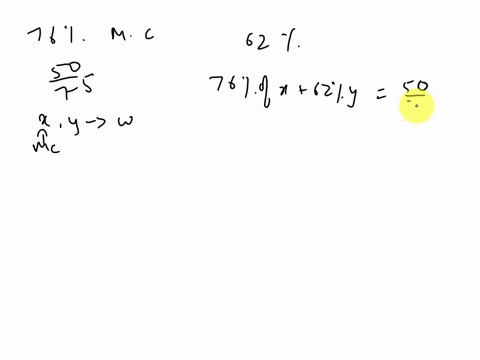 76%. M. C
62 %.
50/75
76%. of x + 62%. y = 50/
x, y → w
mc